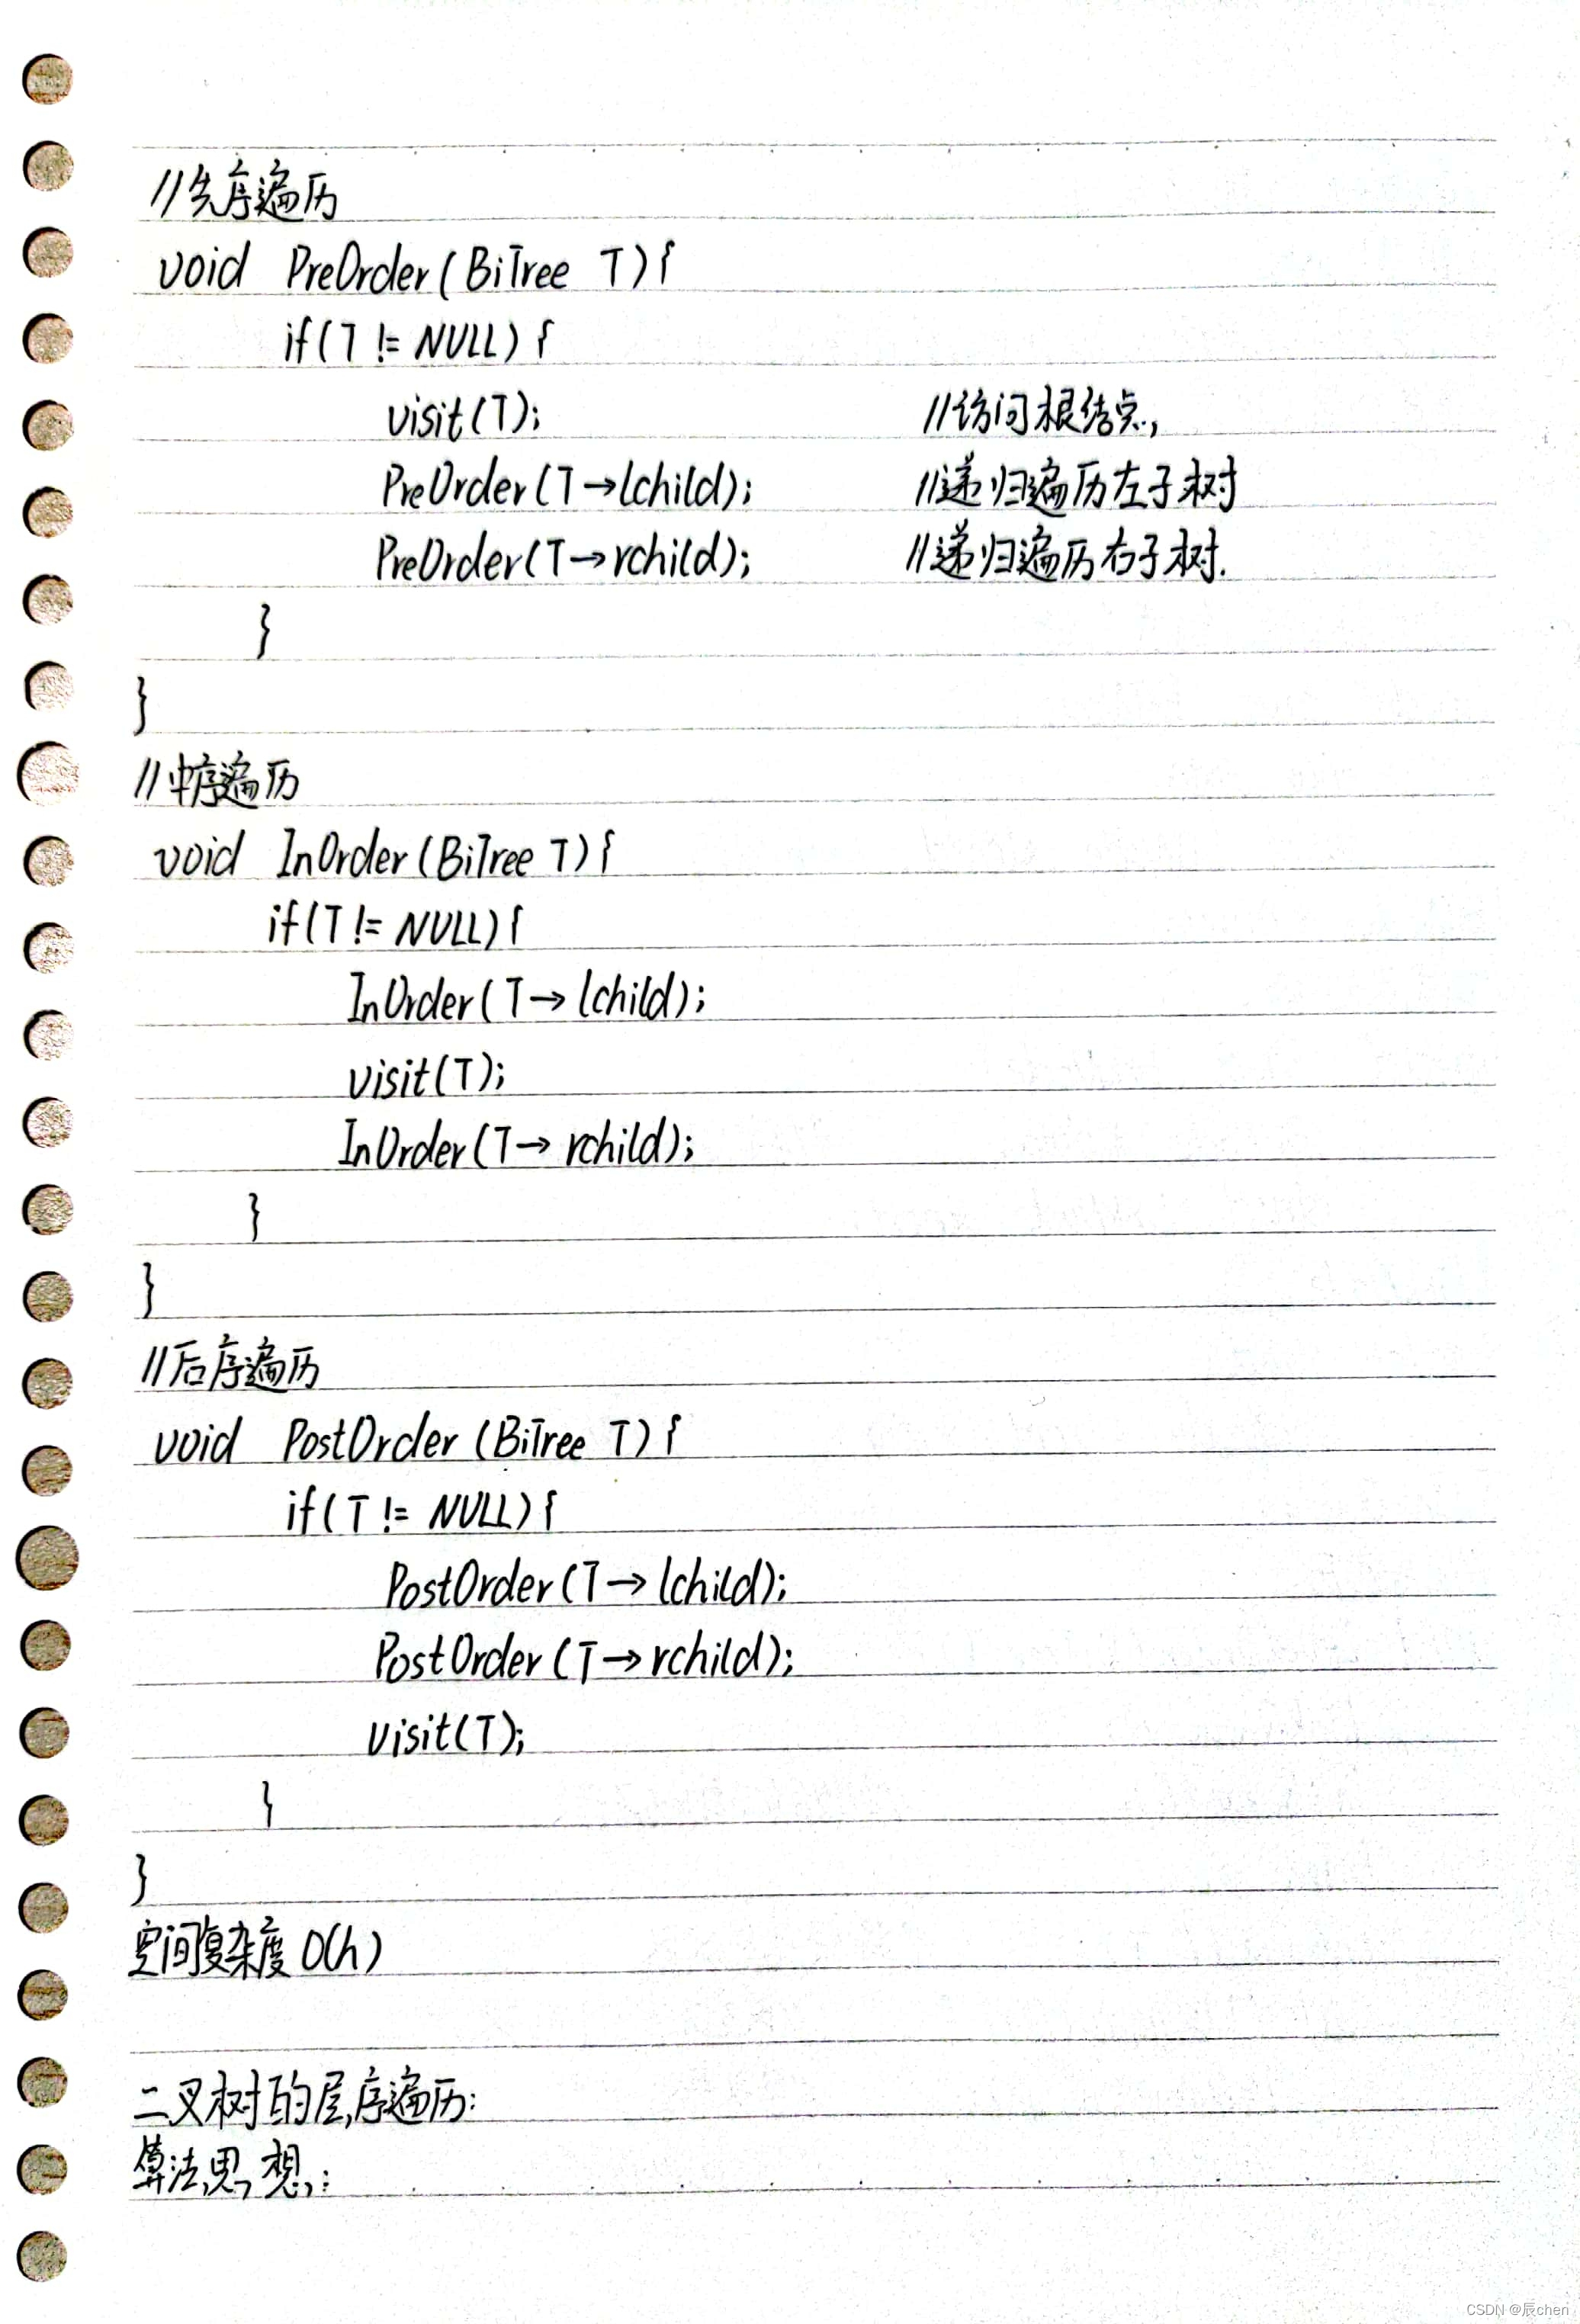 //先序遍历
void PreOrder(BiTree T){
if(T != NULL){
visit(T); //访问根结点,
PreOrder(T→lchild); //递归遍历左子树
PreOrder(T→rchild); //递归遍历右子树.
}
}
//中序遍历
void InOrder(BiTree T){
if(T != NULL){
InOrder(T→lchild);
visit(T);
InOrder(T→rchild);
}
}
//后序遍历
void PostOrder(BiTree T){
if(T != NULL){
PostOrder(T→lchild);
PostOrder(T→rchild);
visit(T);
}
}
空间复杂度 O(h)
二叉树的层序遍历:
算法思想:
CSDN @辰chen